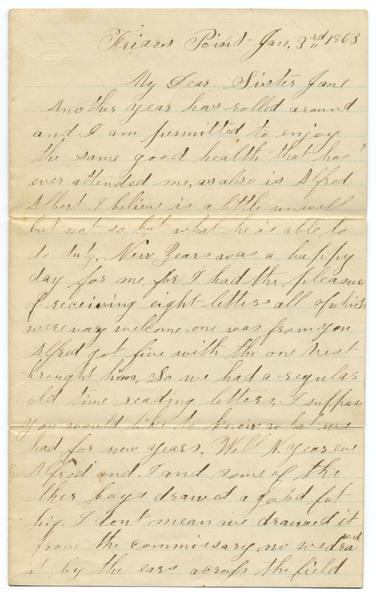 Friars Point Jan, 3rd 1863
My Dear Sister Jane
Another Year has rolled around
and I am permitted to enjoy
the same good health that has
ever attended me, as also is Alfred
Albert I believe is a little unwell
but not so but what he is able to
do duty, New Years was a happy
day for me, for I had the pleasure
of receiving eight letters all of which
were very welcome one was from you
Alfred got five with the one
brought him, So we had a regular
old time reading letters, I suppose
you would like to know what we
had for new years, Well N year eve
Alfred and I and some of the
other boys drawed a good fat
pig. I dont mean we drawed it
from the commissary no we drawed
it by the ears across the field